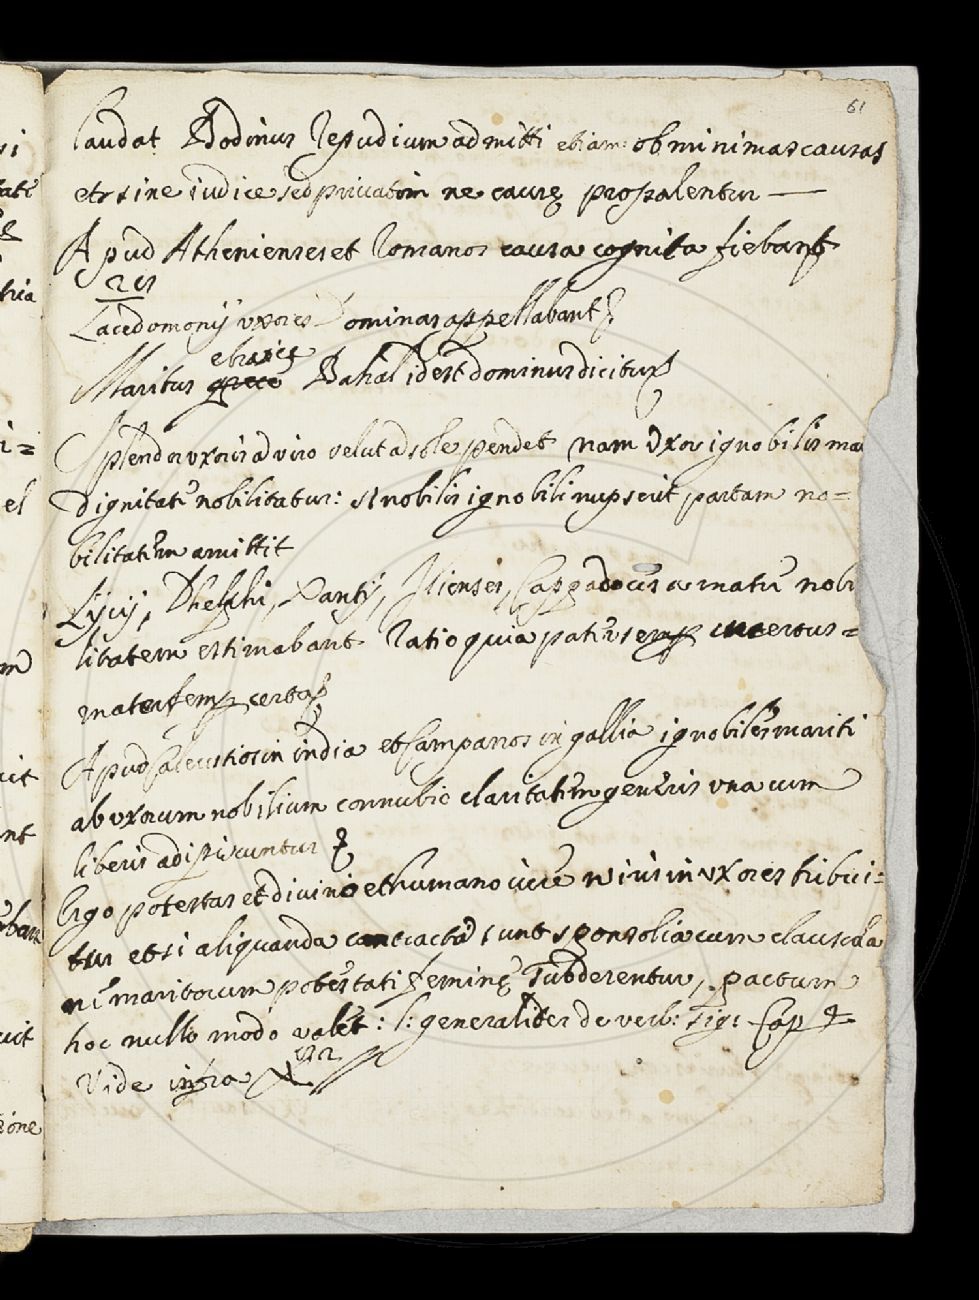 61
laudat Bodinus Repudium admitti etiam ob minimas causas
et sine iudice sed privatim ne causę propalentur —
Apud Athenienses et Romanos causa cognita fiebant
Lacedomonij uxores Dominas appellabant
ebraicę
Maritus grece Bahal id est dominus dicitur
Splendor uxoris a viro velut a sole pendet nam uxor ignobilis ma
dignitate nobilitatur: si nobilis ignobili nupserit, partam no=
bilitatem amittit
Lycij, Dhelphi, Xantij, Ilienses, Cappadoces a matre nobi
litatem estimabant Ratio quia pater semp incertus=
mater semp certa
Apud in india et Campanos in gallia ignobiles mariti
ab uxorum nobilium connubio claritatem generis una cum
liberis adipiscuntur
Ergo potestas et divino et humano iure viris in uxores tribui=
tur et si aliquando contracta sunt sponsolia cum clausola
ne maritorum potestati feminę subderentur, pactum
hoc nullo modo valet: l: generaliter de verb: sig: Cap
Vide infra